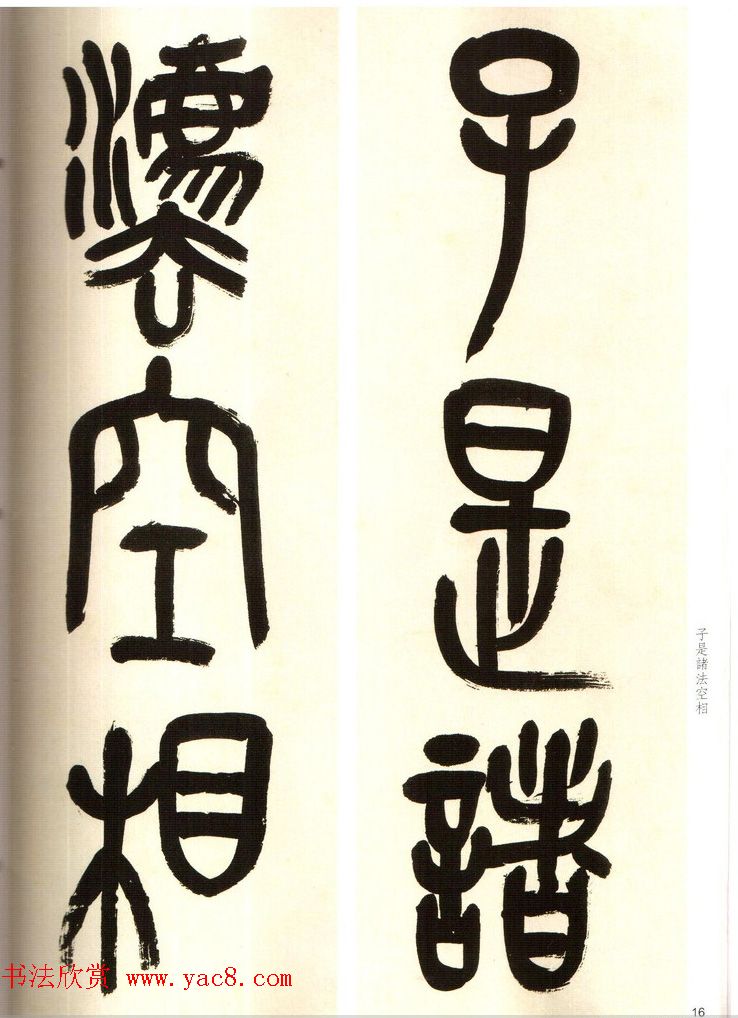 子是諸
灋空相
子是諸法空相
书法欣赏 www.yac8.com
16